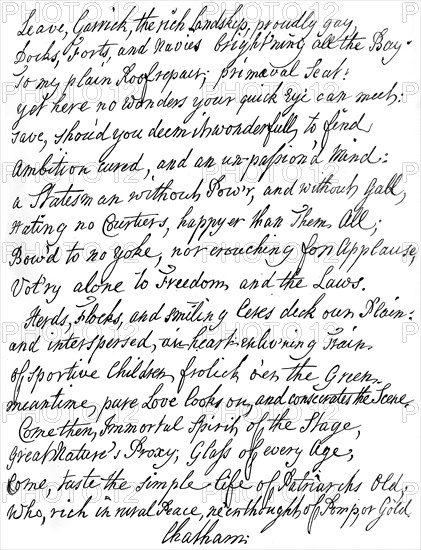 Leave, Garrick, the rich Landskip, proudly gay,
Docks, Forts, and Navies bright'ning all the Bay.
To my plain Roof repair; primæval Seat:
yet here no Wonders your quick Eye can meet:
save, shou'd you deem it wonderfull, to find
Ambition cured, and an un-passion'd Mind:
a Statesman without Pow'r, and without Gall,
Hating no Courtiers, happyer than Them All;
Bow'd to no yoke, nor crouching for Applause,
Vot'ry alone to Freedom and the Laws.
Herds, Flocks, and smiling Ceres deck our Plain:
and interspersed, an heart-enliv'ning Train
of sportive Children frolick o'er the Green.
meantime, pure Love looks on, and consecrates the Scene.
Come then, Immortal Spirit of the Stage,
great Nature's Proxy, Glass of every Age;
Come, taste the simple Life of Patriarchs Old,
who, rich in rural Peace, ne'er thought of Pomp, or Gold.
Chatham: